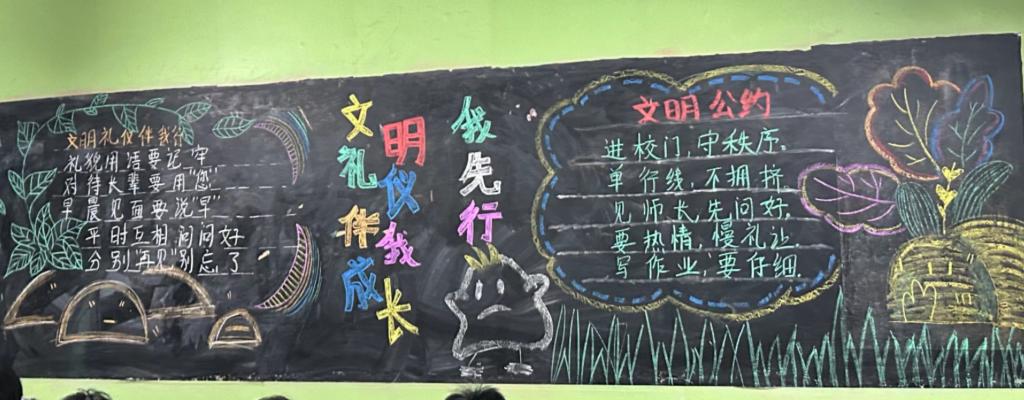 文明礼仪伴我行
礼貌用语要记牢
对待长辈要用"您"
早晨见面要说"早"
平时互相问问好
分别再见"别忘了
文明礼仪伴我成长
我先行
文明公约
进校门,守秩序.
单行线,不拥挤.
见师长,先问好.
要热情,慢礼让.
写作业,要仔细.